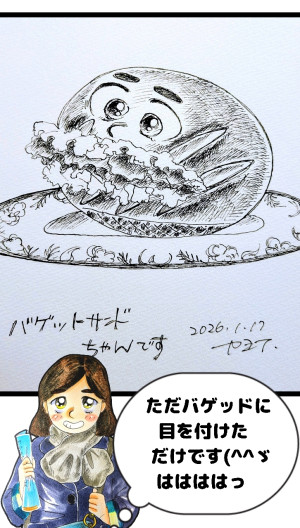 バゲットサンド
ちゃんです
2026.1.17
ただバゲッドに
目を付けた
だけです(^^ゞ
はははははっ